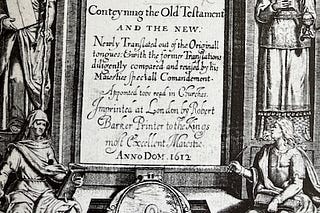 Conteyning the Old Testament
AND THE NEW.
Newly Translated out of the Originall
tongues: & with the former Translations
diligently compared and reuised by his
Maiesties speciall Comandement.
Appointed to be read in Churches.
Imprinted at London by Robert
Barker Printer to the Kings
most Excellent Maiestie
ANNO DOM. 1612